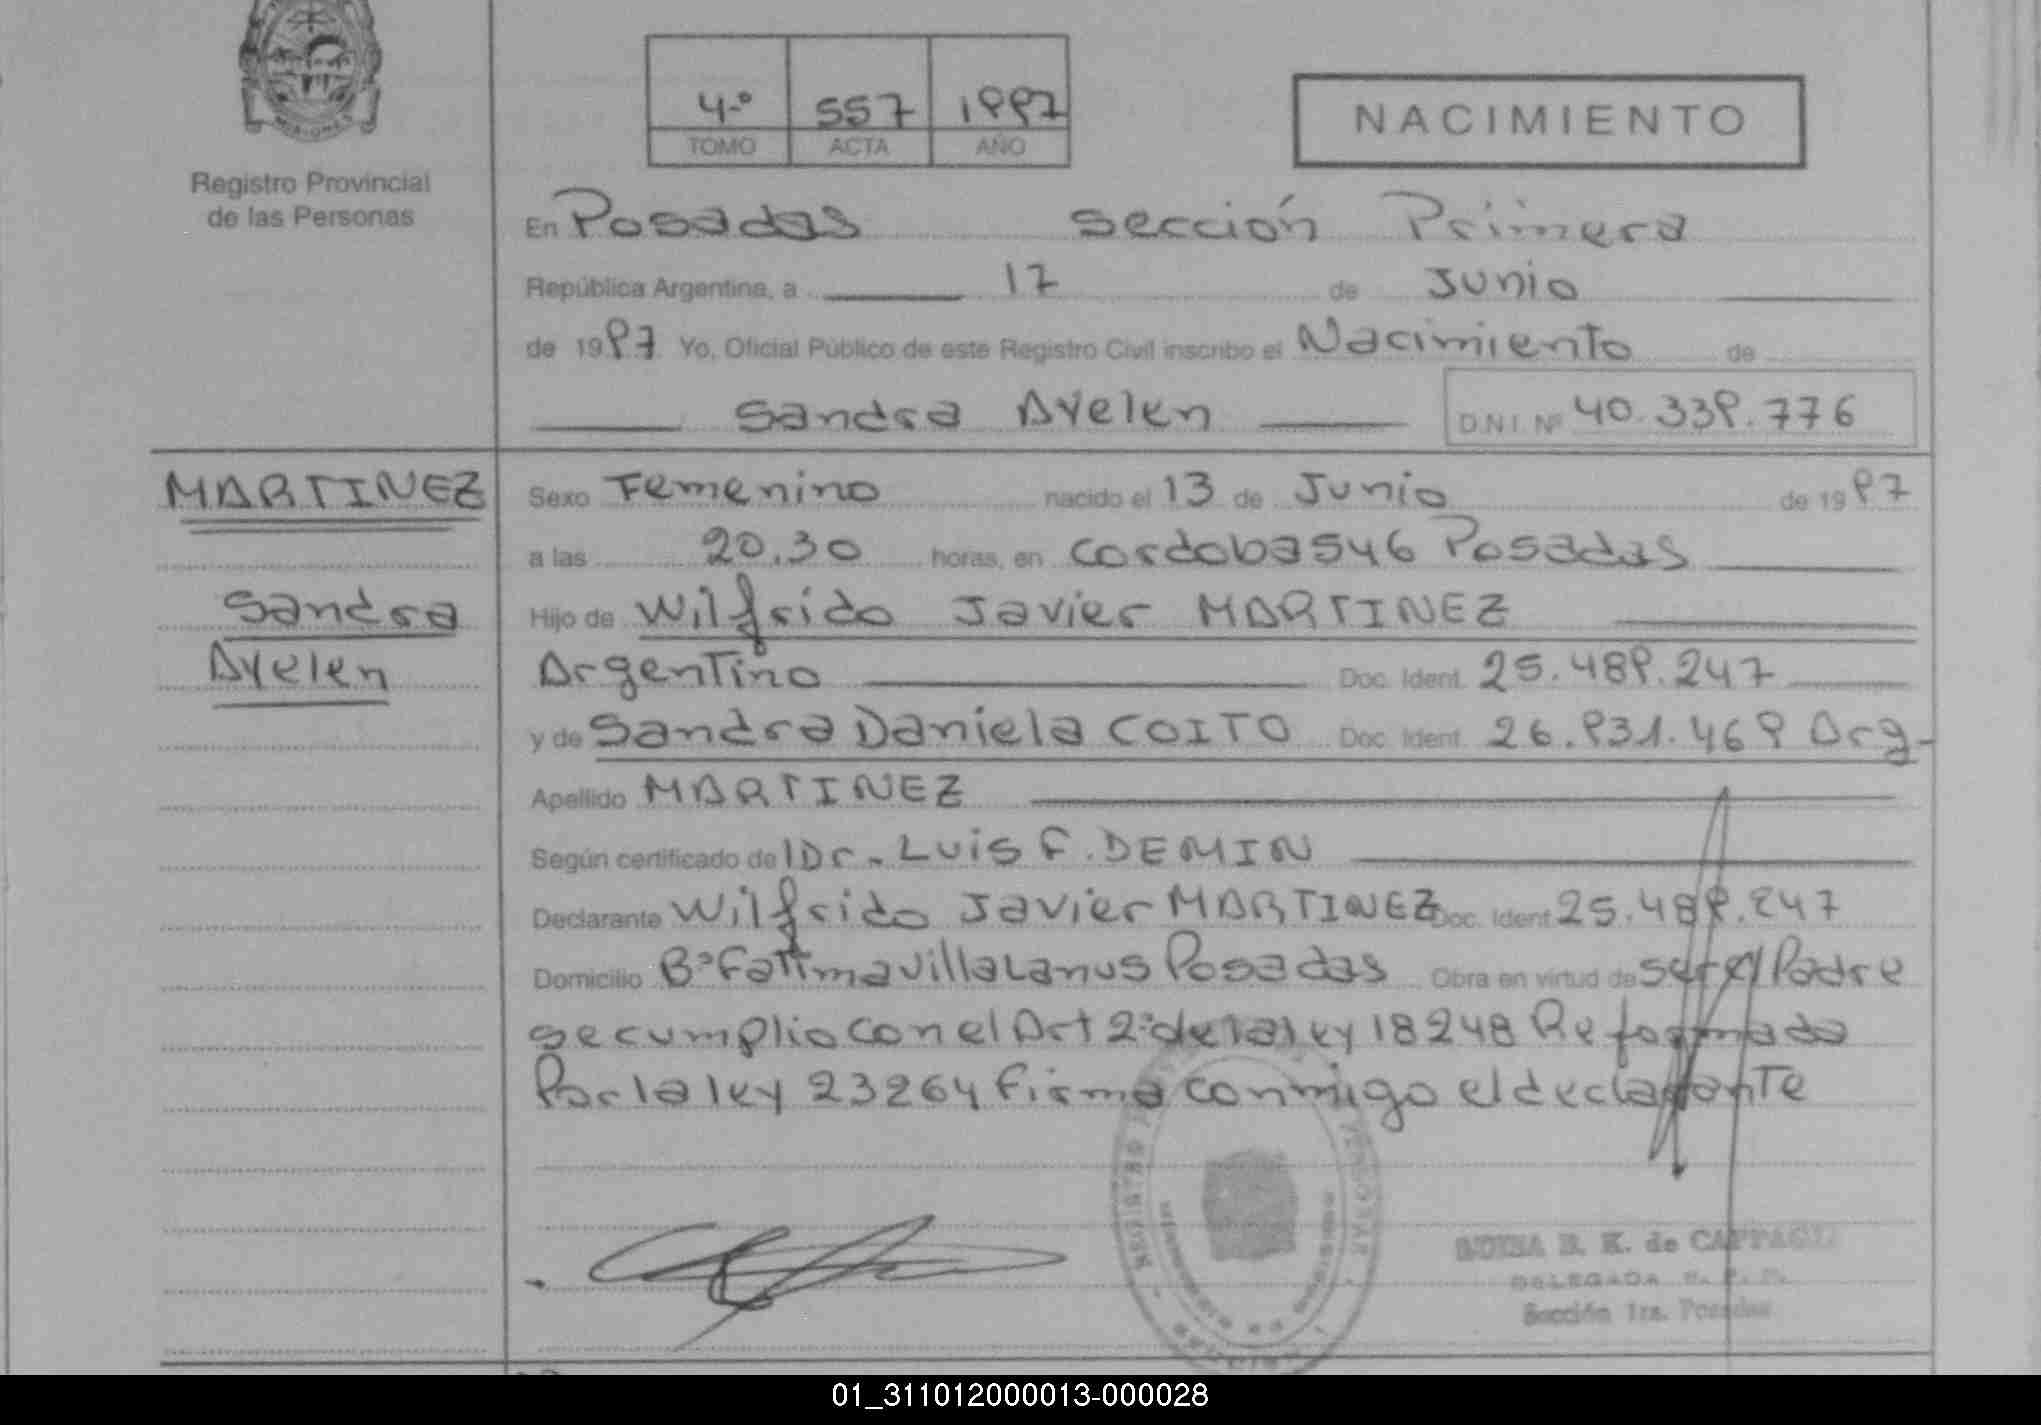 MISIONES
Registro Provincial
de las Personas
4º 557 1997
TOMO ACTA AÑO
NACIMIENTO
En Posadas sección Primera
República Argentina, a 17 de Junio
de 1997 Yo, Oficial Público de este Registro Civil inscribo el Nacimiento de
Sandra Ayelen D.N.I. Nº 40.339.776
MARTINEZ
Sandra
Ayelen
Sexo Femenino nacido el 13 de Junio de 1997
a las 20.30 horas, en Cordoba 546 Posadas
Hijo de Wilfrido Javier MARTINEZ
Argentino Doc. Ident. 25.489.247
y de Sandra Daniela COITO Doc. Ident. 26.931.469 Arg-
Apellido MARTINEZ
Según certificado de Dr. Luis F. DEMIN
Declarante Wilfrido Javier MARTINEZ Doc. Ident. 25.489.247
Domicilio Bº Fatima Villa Lanus Posadas Obra en virtud de ser el Padre
se cumplio con el Art 2º de la ley 18248 Reformada
Por la ley 23264 firma conmigo el declarante
B. K. de
DELEGADA R. P. P.
Sección 1ra. Posadas
01_311012000013-000028